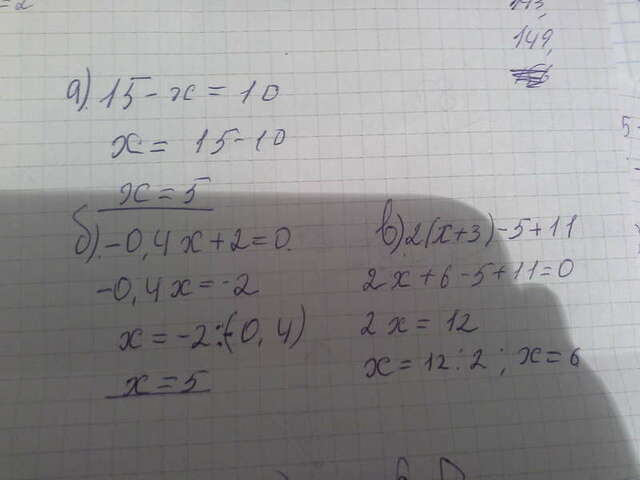 =2
149,
а) 15 - x = 10
x = 15 - 10
x = 5
б) -0,4x + 2 = 0
-0,4x = -2
x = -2 : (-0,4)
x = 5
в) 2(x+3) - 5 + 11
2x + 6 - 5 + 11 = 0
2x = 12
x = 12 : 2 ; x = 6